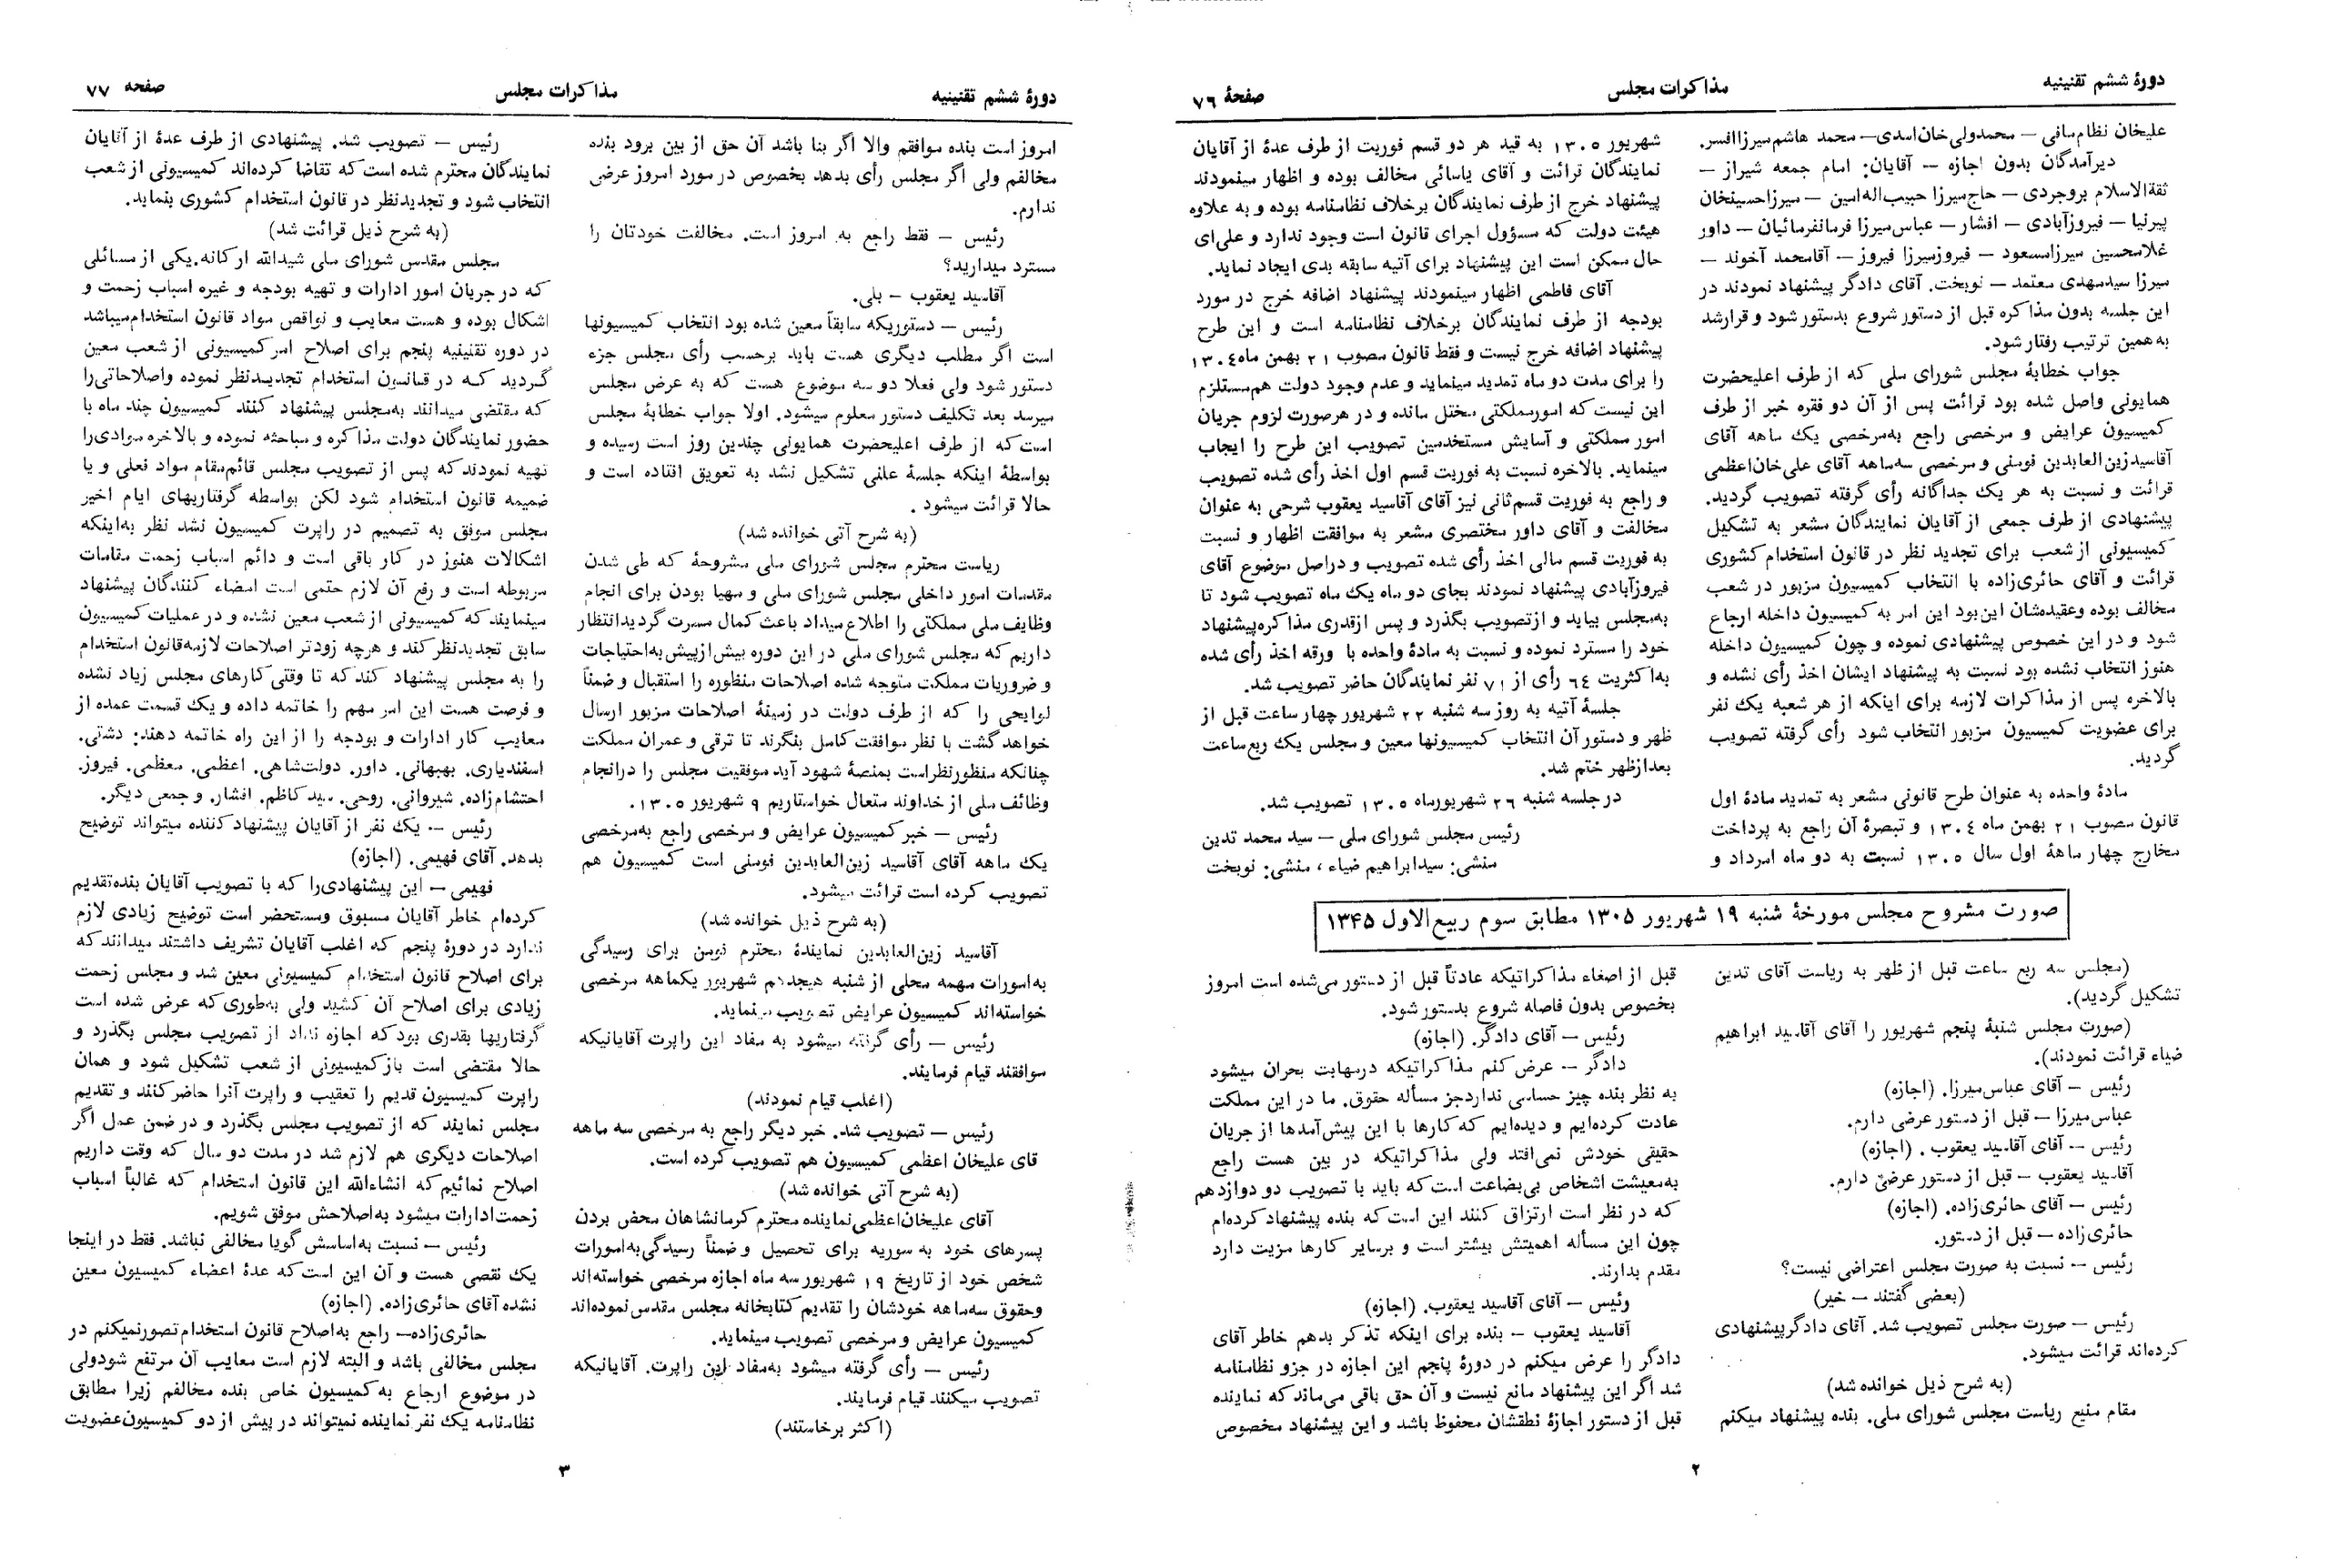 دورهٔ ششم تقنینیه
مذاکرات مجلس
صفحهٔ ۷۶
علیخان نظام‌مافی — محمدولی‌خان‌اسدی— محمد هاشم‌میرزاافسر.
دیرآمدگان بدون اجازه — آقایان: امام جمعه شیراز —
ثقةالاسلام بروجردی — حاج‌میرزا حبیب‌اله‌امین — میرزاحسینخان
پیرنیا — فیروزآبادی — افشار — عباس‌میرزا فرمانفرمائیان — داور
غلامحسین میرزامسعود — فیروزمیرزا فیروز — آقامحمد آخوند —
میرزا سیدمهدی معتمد — نوبخت. آقای دادگر پیشنهاد نمودند در
این جلسه بدون مذاکره قبل از دستور شروع بدستور شود و قرارشد
به همین ترتیب رفتار شود.
جواب خطابهٔ مجلس شورای ملی که از طرف اعلیحضرت
همایونی واصل شده بود قرائت پس از آن دو فقره خبر از طرف
کمیسیون عرایض و مرخصی راجع به‌مرخصی یک ماهه آقای
آقاسیدزین‌العابدین فومنی و مرخصی سه‌ماهه آقای علی‌خان‌اعظمی
قرائت و نسبت به هر یک جداگانه رأی گرفته تصویب گردید.
پیشنهادی از طرف جمعی از آقایان نمایندگان مشعر به تشکیل
کمیسیونی از شعب برای تجدید نظر در قانون استخدام کشوری
قرائت و آقای حائری‌زاده با انتخاب کمیسیون مزبور در شعب
مخالف بوده وعقیده‌شان این‌بود این امر به‌کمیسیون داخله ارجاع
شود و در این خصوص پیشنهادی نموده و چون کمیسیون داخله
هنوز انتخاب نشده بود نسبت به پیشنهاد ایشان اخذ رأی نشده و
بالاخره پس از مذاکرات لازمه برای اینکه از هر شعبه یک نفر
برای عضویت کمیسیون مزبور انتخاب شود رأی گرفته تصویب
گردید.
مادهٔ واحده به عنوان طرح قانونی مشعر به تمدید مادهٔ اول
قانون مصوب ۲۱ بهمن ماه ۱۳۰۴ و تبصرهٔ آن راجع به پرداخت
مخارج چهار ماههٔ اول سال ۱۳۰۵ نسبت به دو ماه امرداد و
شهریور ۱۳۰۵ به قید هر دو قسم فوریت از طرف عدهٔ از آقایان
نمایندگان قرائت و آقای یاسائی مخالف بوده و اظهار مینمودند
پیشنهاد خرج از طرف نمایندگان برخلاف نظامنامه بوده و به علاوه
هیئت دولت که مسؤول اجرای قانون است وجود ندارد و علی‌ای
حال ممکن است این پیشنهاد برای آتیه سابقه بدی ایجاد نماید.
آقای فاطمی اظهار مینمودند پیشنهاد اضافه خرج در مورد
بودجه از طرف نمایندگان برخلاف نظامنامه است و این طرح
پیشنهاد اضافه خرج نیست و فقط قانون مصوب ۲۱ بهمن ماه۱۳۰۴
را برای مدت دو ماه تمدید مینماید و عدم وجود دولت هم‌مستلزم
این نیست که امورمملکتی مختل مانده و در هرصورت لزوم جریان
امور مملکتی و آسایش مستخدمین تصویب این طرح را ایجاب
مینماید. بالاخره نسبت به فوریت قسم اول اخذ رأی شده تصویب
و راجع به فوریت قسم‌ثانی نیز آقای آقاسید یعقوب شرحی به عنوان
مخالفت و آقای داور مختصری مشعر به موافقت اظهار و نسبت
به فوریت قسم مالی اخذ رأی شده تصویب و دراصل موضوع آقای
فیروزآبادی پیشنهاد نمودند بجای دو ماه یک ماه تصویب شود تا
به‌مجلس بیاید و ازتصویب بگذرد و پس ازقدری مذاکره‌پیشنهاد
خود را مسترد نموده و نسبت به مادهٔ واحده با ورقه اخذ رأی شده
به‌اکثریت ۶۴ رأی از ۷۱ نفر نمایندگان حاضر تصویب شد.
جلسهٔ آتیه به روز سه شنبه ۲۲ شهریور چهار ساعت قبل از
ظهر و دستور آن انتخاب کمیسیونها معین و مجلس یک ربع‌ساعت
بعدازظهر ختم شد.
در جلسه شنبه ۲۶ شهریورماه ۱۳۰۵ تصویب شد.
رئیس مجلس شورای ملی — سید محمد تدین
منشی: سیدابراهیم ضیاء ، منشی: نوبخت
صورت مشروح مجلس مورخهٔ شنبه ۱۹ شهریور ۱۳۰۵ مطابق سوم ربیع‌الاول ۱۳۴۵
(مجلس سه ربع ساعت قبل از ظهر به ریاست آقای تدین
تشکیل گردید).
(صورت مجلس شنبهٔ پنجم شهریور را آقای آقاسید ابراهیم
ضیاء قرائت نمودند).
رئیس — آقای عباس‌میرزا. (اجازه)
عباس‌میرزا — قبل از دستور عرضی دارم.
رئیس — آقای آقاسید یعقوب . (اجازه)
آقاسید یعقوب — قبل از دستور عرضی دارم.
رئیس — آقای حائری‌زاده. (اجازه)
حائری‌زاده — قبل از دستور.
رئیس — نسبت به صورت مجلس اعتراضی نیست؟
(بعضی گفتند — خیر)
رئیس — صورت مجلس تصویب شد. آقای دادگرپیشنهادی
کرده‌اند قرائت میشود.
(به شرح ذیل خوانده شد)
مقام منیع ریاست مجلس شورای ملی. بنده پیشنهاد میکنم
قبل از اصغاء مذاکراتیکه عادتاً قبل از دستور می‌شده است امروز
بخصوص بدون فاصله شروع بدستور شود.
رئیس — آقای دادگر. (اجازه)
دادگر — عرض کنم مذاکراتیکه درمهابت بحران میشود
به نظر بنده چیز حساسی نداردجز مسأله حقوق. ما در این مملکت
عادت کرده‌ایم و دیده‌ایم که کارها با این پیش‌آمدها از جریان
حقیقی خودش نمی‌افتد ولی مذاکراتیکه در بین هست راجع
به‌معیشت اشخاص بی‌بضاعت است که باید با تصویب دو دوازدهم
که در نظر است ارتزاق کنند این است که بنده پیشنهاد کرده‌ام
چون این مسأله اهمیتش بیشتر است و برسایر کارها مزیت دارد
مقدم بدارند.
رئیس — آقای آقاسید یعقوب. (اجازه)
آقاسید یعقوب — بنده برای اینکه تذکر بدهم خاطر آقای
دادگر را عرض میکنم در دورهٔ پنجم این اجازه در جزو نظامنامه
شد اگر این پیشنهاد مانع نیست و آن حق باقی می‌ماند که نماینده
قبل از دستور اجازهٔ نطقشان محفوظ باشد و این پیشنهاد مخصوص
۲
دورهٔ ششم تقنینیه
مذاکرات مجلس
صفحه ۷۷
امروز است بنده موافقم والا اگر بنا باشد آن حق از بین برود بنده
مخالفم ولی اگر مجلس رأی بدهد بخصوص در مورد امروز عرضی
ندارم.
رئیس — فقط راجع به امروز است. مخالفت خودتان را
مسترد میدارید؟
آقاسید یعقوب — بلی.
رئیس — دستوریکه سابقاً معین شده بود انتخاب کمیسیونها
است اگر مطلب دیگری هست باید برحسب رأی مجلس جزء
دستور شود ولی فعلا دو سه موضوع هست که به عرض مجلس
میرسد بعد تکلیف دستور معلوم میشود. اولا جواب خطابهٔ مجلس
است که از طرف اعلیحضرت همایونی چندین روز است رسیده و
بواسطهٔ اینکه جلسهٔ علنی تشکیل نشد به تعویق افتاده است و
حالا قرائت میشود .
(به شرح آتی خوانده شد)
ریاست محترم مجلس شورای ملی مشروحهٔ که طی شدن
مقدمات امور داخلی مجلس شورای ملی و مهیا بودن برای انجام
وظایف ملی مملکتی را اطلاع میداد باعث کمال مسرت گردیدانتظار
داریم‌که مجلس شورای ملی در این دوره بیش‌ازپیش‌به‌احتیاجات
و ضروریات مملکت متوجه شده اصلاحات منظوره را استقبال و ضمناً
لوایحی را که از طرف دولت در زمینهٔ اصلاحات مزبور ارسال
خواهدگشت با نظر موافقت کامل بنگرند تا ترقی و عمران مملکت
چنانکه منظورنظراست بمنصهٔ شهود آید موفقیت مجلس را درانجام
وظائف ملی از خداوند متعال خواستاریم ۹ شهریور ۱۳۰۵.
رئیس — خبرکمیسیون عرایض و مرخصی راجع به‌مرخصی
یک ماهه آقای آقاسید زین‌العابدین فومنی است کمیسیون هم
تصویب کرده است قرائت میشود.
(به شرح ذیل خوانده شد)
آقاسید زین‌العابدین نمایندهٔ محترم فومن برای رسیدگی
به‌امورات مهمه محلی از شنبه هیجدهم شهریور یکماهه مرخصی
خواسته‌اند کمیسیون عرایض تصویب مینماید.
رئیس — رأی گرفته میشود به مفاد این راپرت آقایانیکه
موافقند قیام فرمایند.
(اغلب قیام نمودند)
رئیس — تصویب شد. خبر دیگر راجع به مرخصی سه ماهه
قای علیخان اعظمی کمیسیون هم تصویب کرده است.
(به شرح آتی خوانده شد)
آقای علیخان‌اعظمی‌نماینده محترم کرمانشاهان محض بردن
پسرهای خود به سوریه برای تحصیل و ضمناً رسیدگی‌به‌امورات
شخص خود از تاریخ ۱۹ شهریور سه ماه اجازه مرخصی خواسته‌اند
وحقوق سه‌ماهه خودشان را تقدیم کتابخانه مجلس مقدس‌نموده‌اند
کمیسیون عرایض و مرخصی تصویب مینماید.
رئیس — رأی گرفته میشود به‌مفاد این راپرت. آقایانیکه
تصویب میکنند قیام فرمایند.
(اکثر برخاستند)
رئیس — تصویب شد. پیشنهادی از طرف عدهٔ از آقایان
نمایندگان محترم شده است که تقاضا کرده‌اند کمیسیونی از شعب
انتخاب شود و تجدیدنظر در قانون استخدام کشوری بنماید.
(به شرح ذیل قرائت شد)
مجلس مقدس شورای ملی شیدالله ارکانه.یکی از مسائلی
که در جریان امور ادارات و تهیه بودجه و غیره اسباب زحمت و
اشکال بوده و هست معایب و نواقص مواد قانون استخدام‌میباشد
در دوره تقنینیه پنجم برای اصلاح امر کمیسیونی از شعب معین
گردید که در قانون استخدام تجدیدنظر نموده واصلاحاتی‌را
که مقتضی میدانند به‌مجلس پیشنهاد کنند کمیسیون چند ماه با
حضور نمایندگان دولت مذاکره و مباحثه نموده و بالاخره موادی‌را
تهیه نمودند که پس از تصویب مجلس قائم‌مقام مواد فعلی و یا
ضمیمه قانون استخدام شود لکن بواسطه گرفتاریهای ایام اخیر
مجلس موفق به تصمیم در راپرت کمیسیون نشد نظر به‌اینکه
اشکالات هنوز در کار باقی است و دائم اسباب زحمت مقامات
مربوطه است و رفع آن لازم حتمی است امضاء کنندگان پیشنهاد
مینمایند که کمیسیونی از شعب معین نشده و در عملیات کمیسیون
سابق تجدیدنظر کند و هرچه زودتر اصلاحات لازمه‌قانون استخدام
را به مجلس پیشنهاد کند که تا وقتی کارهای مجلس زیاد نشده
و فرصت هست این امر مهم را خاتمه داده و یک قسمت عمده از
معایب کار ادارات و بودجه را از این راه خاتمه دهند: دشتی.
اسفندیاری. بهبهانی. داور. دولت‌شاهی. اعظمی. معظمی. فیروز.
احتشام‌زاده. شیروانی. روحی. سیدکاظم. افشار. و جمعی دیگر.
رئیس — یک نفر از آقایان پیشنهادکننده میتواند توضیح
بدهد. آقای فهیمی. (اجازه)
فهیمی — این پیشنهادی‌را که با تصویب آقایان بنده‌تقدیم
کرده‌ام خاطر آقایان مسبوق ومستحضر است توضیح زیادی لازم
ندارد در دورهٔ پنجم که اغلب آقایان تشریف داشتند میدانند که
برای اصلاح قانون استخدام کمیسیونی معین شد و مجلس زحمت
زیادی برای اصلاح آن کشید ولی به‌طوری‌که عرض شده است
گرفتاریها بقدری بود که اجازه نداد از تصویب مجلس بگذرد و
حالا مقتضی است بازکمیسیونی از شعب تشکیل شود و همان
راپرت کمیسیون قدیم را تعقیب و راپرت آنرا حاضرکنند و تقدیم
مجلس نمایند که از تصویب مجلس بگذرد و در ضمن عمل اگر
اصلاحات دیگری هم لازم شد در مدت دو سال که وقت داریم
اصلاح نمائیم که انشاءالله این قانون استخدام که غالباً اسباب
زحمت‌ادارات میشود به‌اصلاحش موفق شویم.
رئیس — نسبت به‌اساسش گویا مخالفی نباشد. فقط در اینجا
یک نقصی هست و آن این است که عدهٔ اعضاء کمیسیون معین
نشده آقای حائری‌زاده. (اجازه)
حائری‌زاده— راجع به‌اصلاح قانون استخدام تصورنمیکنم در
مجلس مخالفی باشد و البته لازم است معایب آن مرتفع شودولی
در موضوع ارجاع به‌کمیسیون خاص بنده مخالفم زیرا مطابق
نظامنامه یک نفر نماینده نمیتواند در بیش از دو کمیسیون‌عضویت
۳